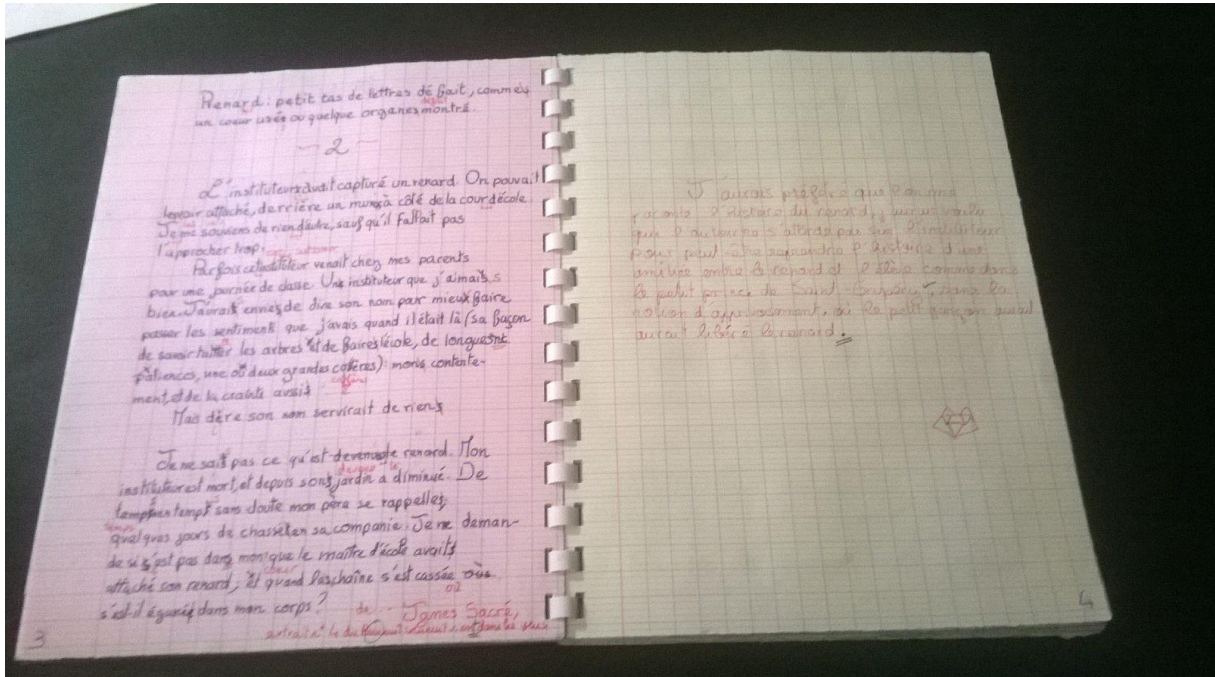 Renard : petit tas de lettres dé fait, commes
un coeur usée ou quelque organes montré.
- 2 -
L'instituteurs avait capturé un renard. On pouvait
levoir attaché, derrière un murs à côté de la cour décole.
Je me souviens de rien dautre, sauf qu'il fallait pas
l'approcher trop.
Parfois cet instituteur venait chez mes parents
pour une journée de classe. Une instituteur que j'aimais
bien. J'avrait envies de dire son nom pour mieux faire
passer les sentiments que j'avais quand il était là (sa façon
de savoir tailler les arbres et de faires l'école, de longuesnt
patiences, une où deux grandes colères) : moris contente-
ment, et de la crainte avssi
Mais dère son nom servirait de riens
Je ne sait pas ce qu'est devenu le renard. Mon
instituteur est mort, et depuis sons jardin a diminué. De
temps en temps sans doute mon père se rappelles
quelques jours de chasse en sa companie. Je me deman-
de si s'est pas dans mon que le maître d'école avaits
coeur
attaché son renard ; et quand laschaîne s'est cassée oùs
où
s'est-il égarés dans mon corps ?
de James Sacré,
3
J'aurais préféré que l'on me
raconte l'histoire du renard, j'aurais voulu
que l'auteur ne s'attarde pas sur l'instituteur
pour peut-être raconter l'histoire d'une
amitiée entre le renard et l'élève comme dans
le petit prince de Saint-Exupéry, dans la
notion d'apprivoisement, ou le petit garçon aurait
aurait libéré le renard.
4